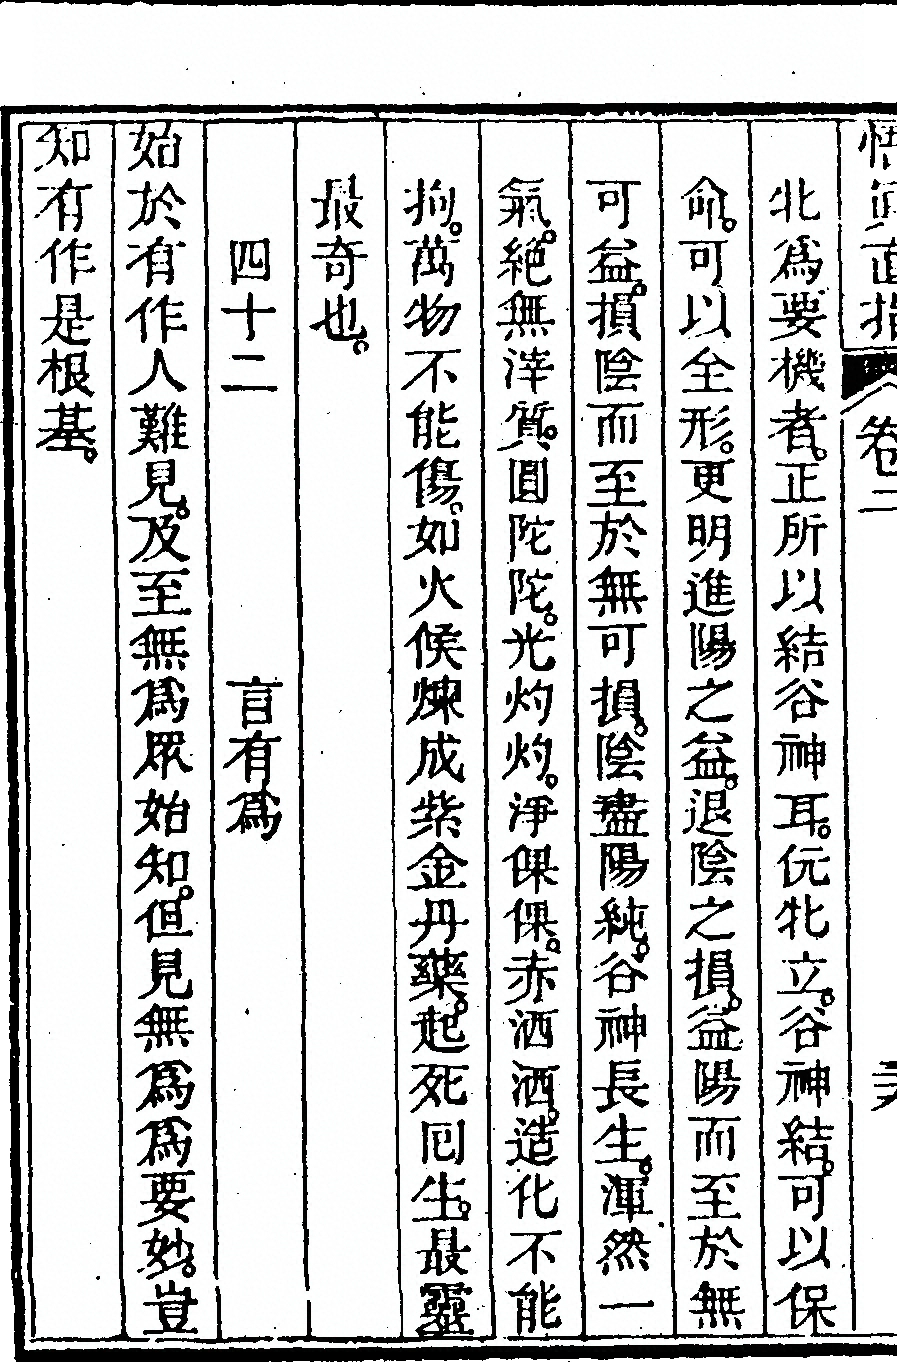 悟真直指 卷二
牝爲要機者。正所以結谷神耳。伭牝立。谷神結。可以保
命。可以全形。更明進陽之益。退陰之損。益陽而至於無
可益。損陰而至於無可損。陰盡陽純。谷神長生。渾然一
氣。絕無滓質。圓陀陀。光灼灼。淨倮倮。赤洒洒。造化不能
拘。萬物不能傷。如火候煉成紫金丹藥。起死囘生。最靈
最奇也。
四十二 言有爲
始於有作人難見。及至無爲眾始知。但見無爲爲要妙。豈
知有作是根基。